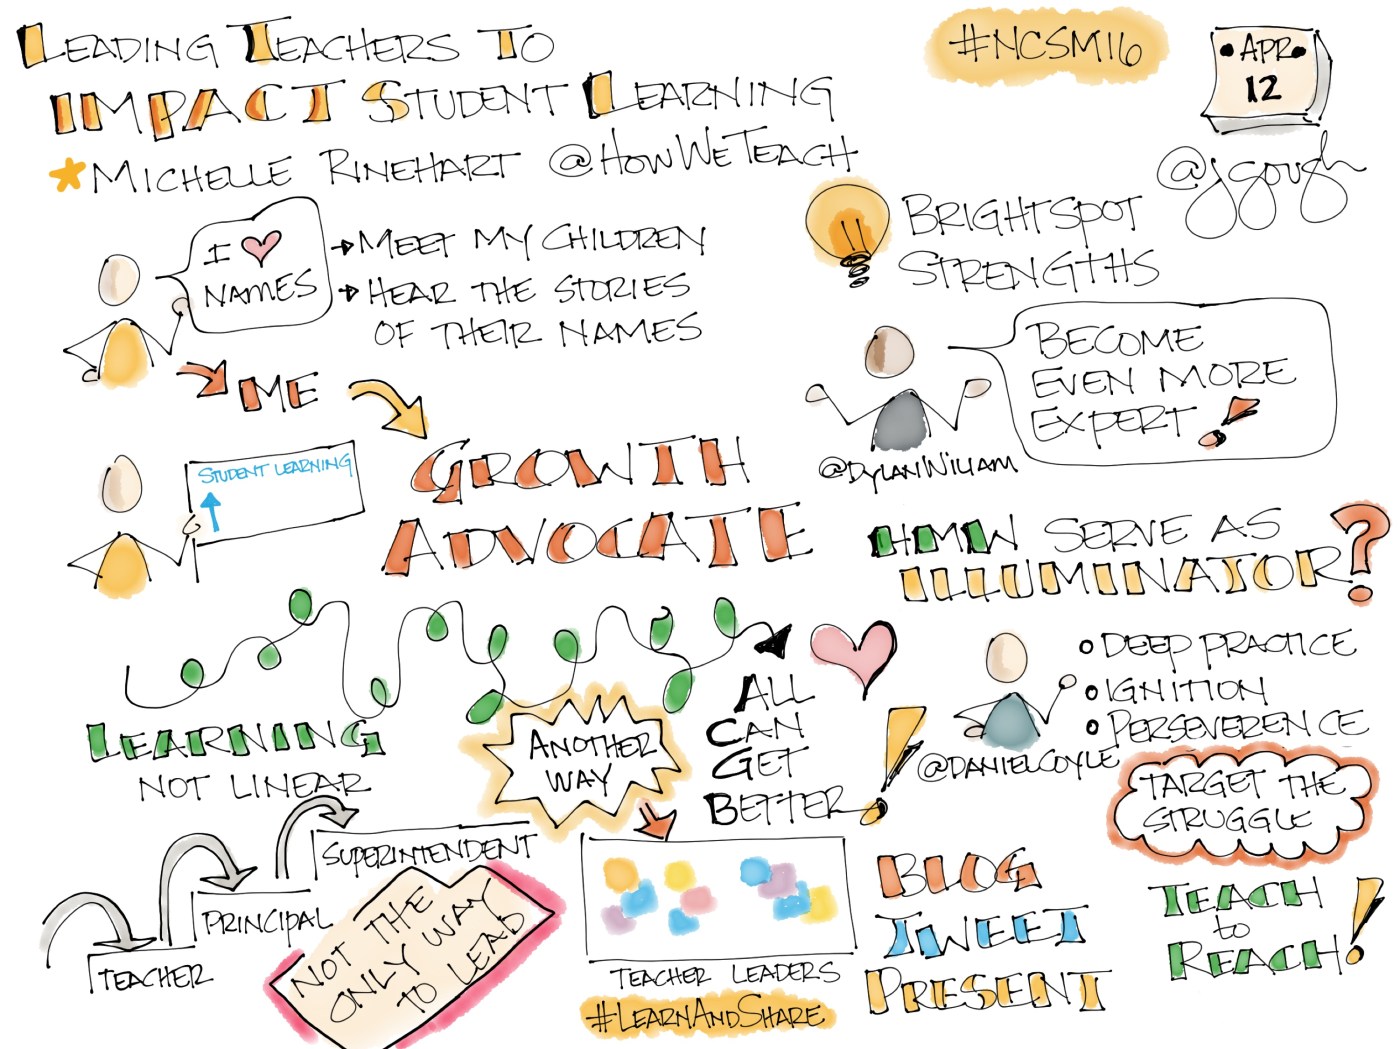 LEADING TEACHERS TO
IMPACT STUDENT LEARNING
MICHELLE RINEHART @HOWWETEACH
#NCSM16
APR
12
@jgough
I
NAMES
MEET MY CHILDREN
HEAR THE STORIES
OF THEIR NAMES
ME
STUDENT LEARNING
GROWTH
ADVOCATE
BRIGHTSPOT
STRENGTHS
BECOME
EVEN MORE
EXPERT!
@DYLANWILIAM
HMW SERVE AS
ILLUMINATOR?
DEEP PRACTICE
IGNITION
PERSEVERENCE
@DANIELCOYLE
TARGET THE
STRUGGLE
TEACH
to
REACH!
LEARNING
NOT LINEAR
ANOTHER
WAY
ALL
CAN
GET
BETTER!
SUPERINTENDENT
PRINCIPAL
TEACHER
NOT THE
ONLY WAY
TO LEAD
TEACHER LEADERS
#LEARNANDSHARE
BLOG
TWEET
PRESENT